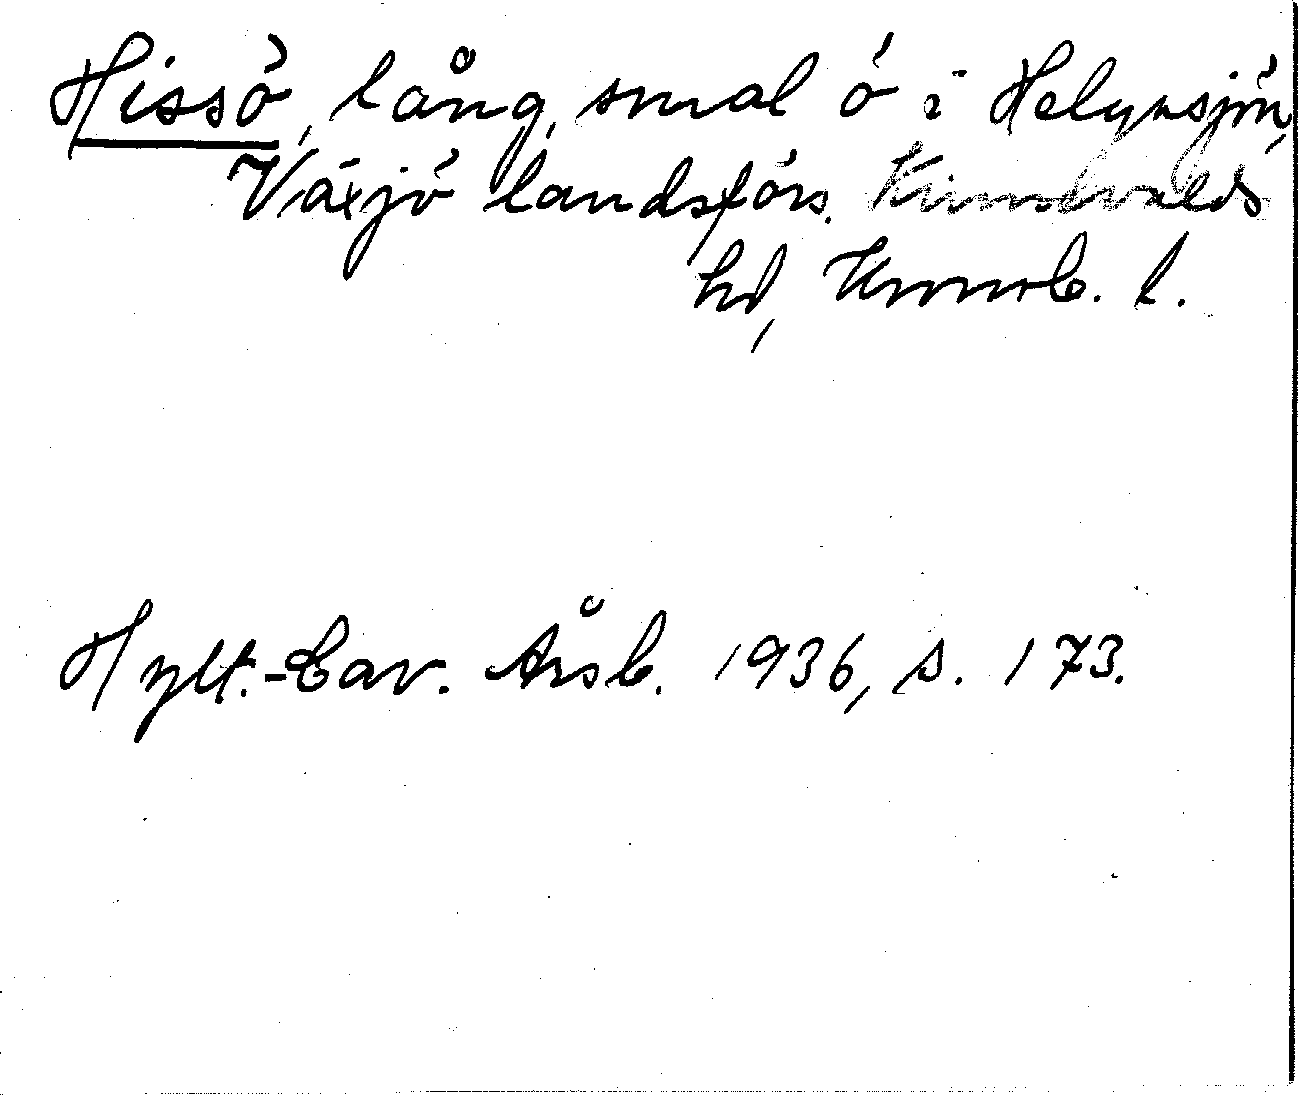 Hissö, lång, smal ö i Helgasjön,
Växjö landsförs. Kinnevalds
hd, Kronob. l.
Hylt.-Cav. Årsb. 1936, s. 173.